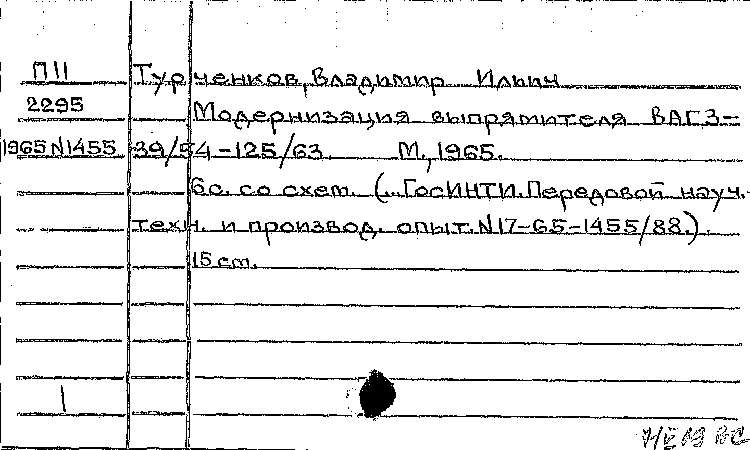 П11 Турченков, Владимир Ильич
2295 Модернизация выпрямителя ВАГЗ-
1965 N1455 39/54-125/63. М., 1965.
6с. со схем. (...ГосИНТИ. Передовой науч.-
техн. и производ. опыт. N17-65-1455/88.).
15 cm.
1